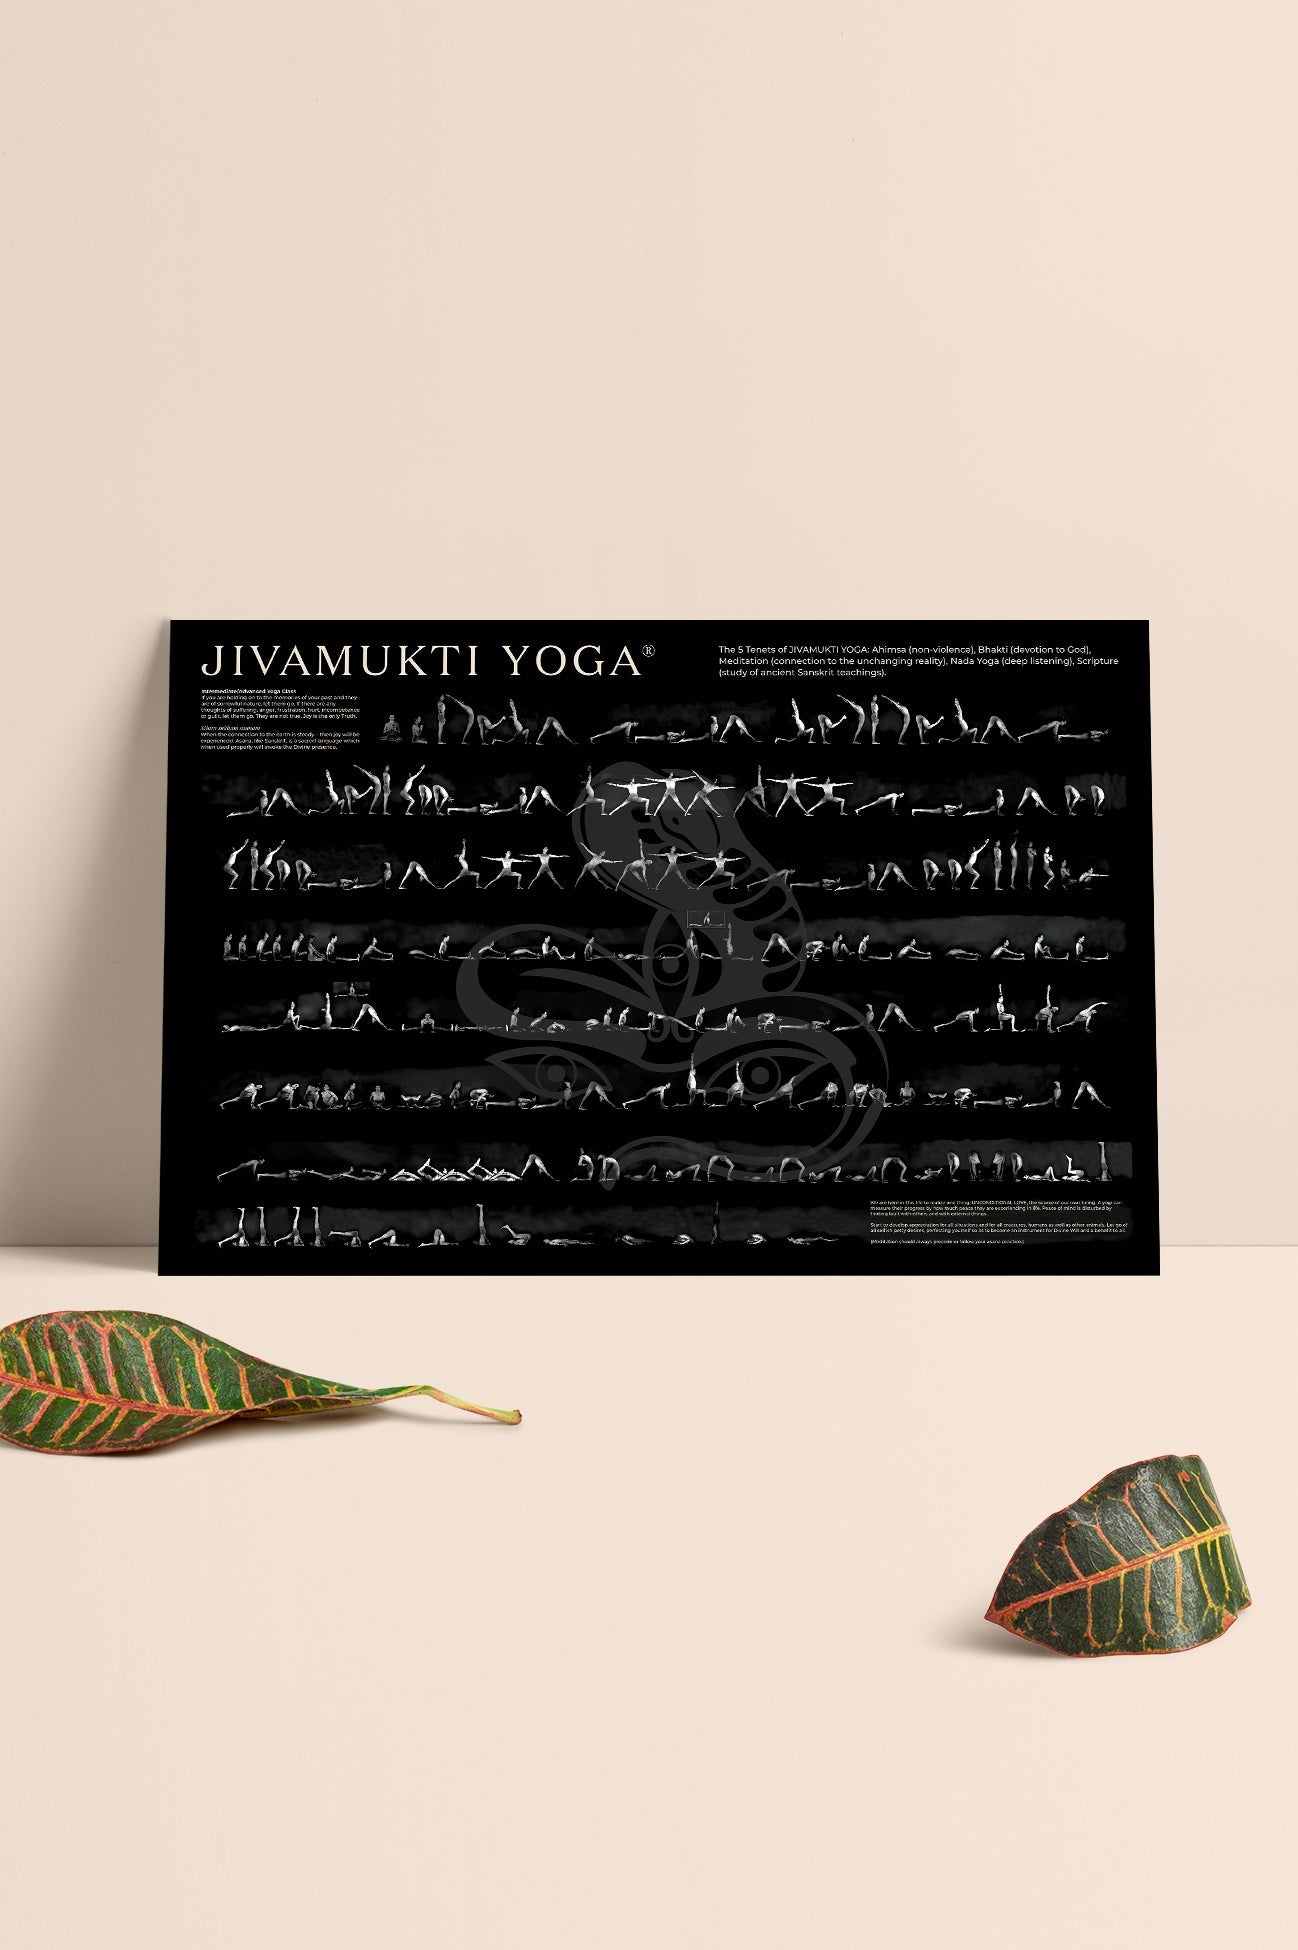 JIVAMUKTI YOGA®
The 5 Tenets of JIVAMUKTI YOGA: Ahimsa (non-violence), Bhakti (devotion to God),
Meditation (connection to the unchanging reality), Nada Yoga (deep listening), Scripture
(study of ancient Sanskrit teachings).
Intermediate/advanced Yoga Class
If you are holding on to the memories of your past and they
are of sorrowful nature, let them go. If there are any
thoughts of suffering, anger, frustration, hurt, incompetence
or guilt, let them go. They are not true. Joy is the only Truth.
When the connection to the earth is steady - then joy will be
experienced. Asana, like Sanskrit, is a sacred language which
when used properly will invoke the Divine presence.
We are here in this life to realize one thing: UNCONDITIONAL LOVE, the source of our own being. A yogi can
measure their progress by how much peace they are experiencing in life. Peace of mind is disturbed by
finding fault with others and with external things.
Start to develop appreciation for all situations and for all creatures, humans as well as other animals. Let go of
all selfish petty desires, perfecting yourself so as to become an instrument for Divine Will and a benefit to all.
(Meditation should always precede or follow your asana practice.)